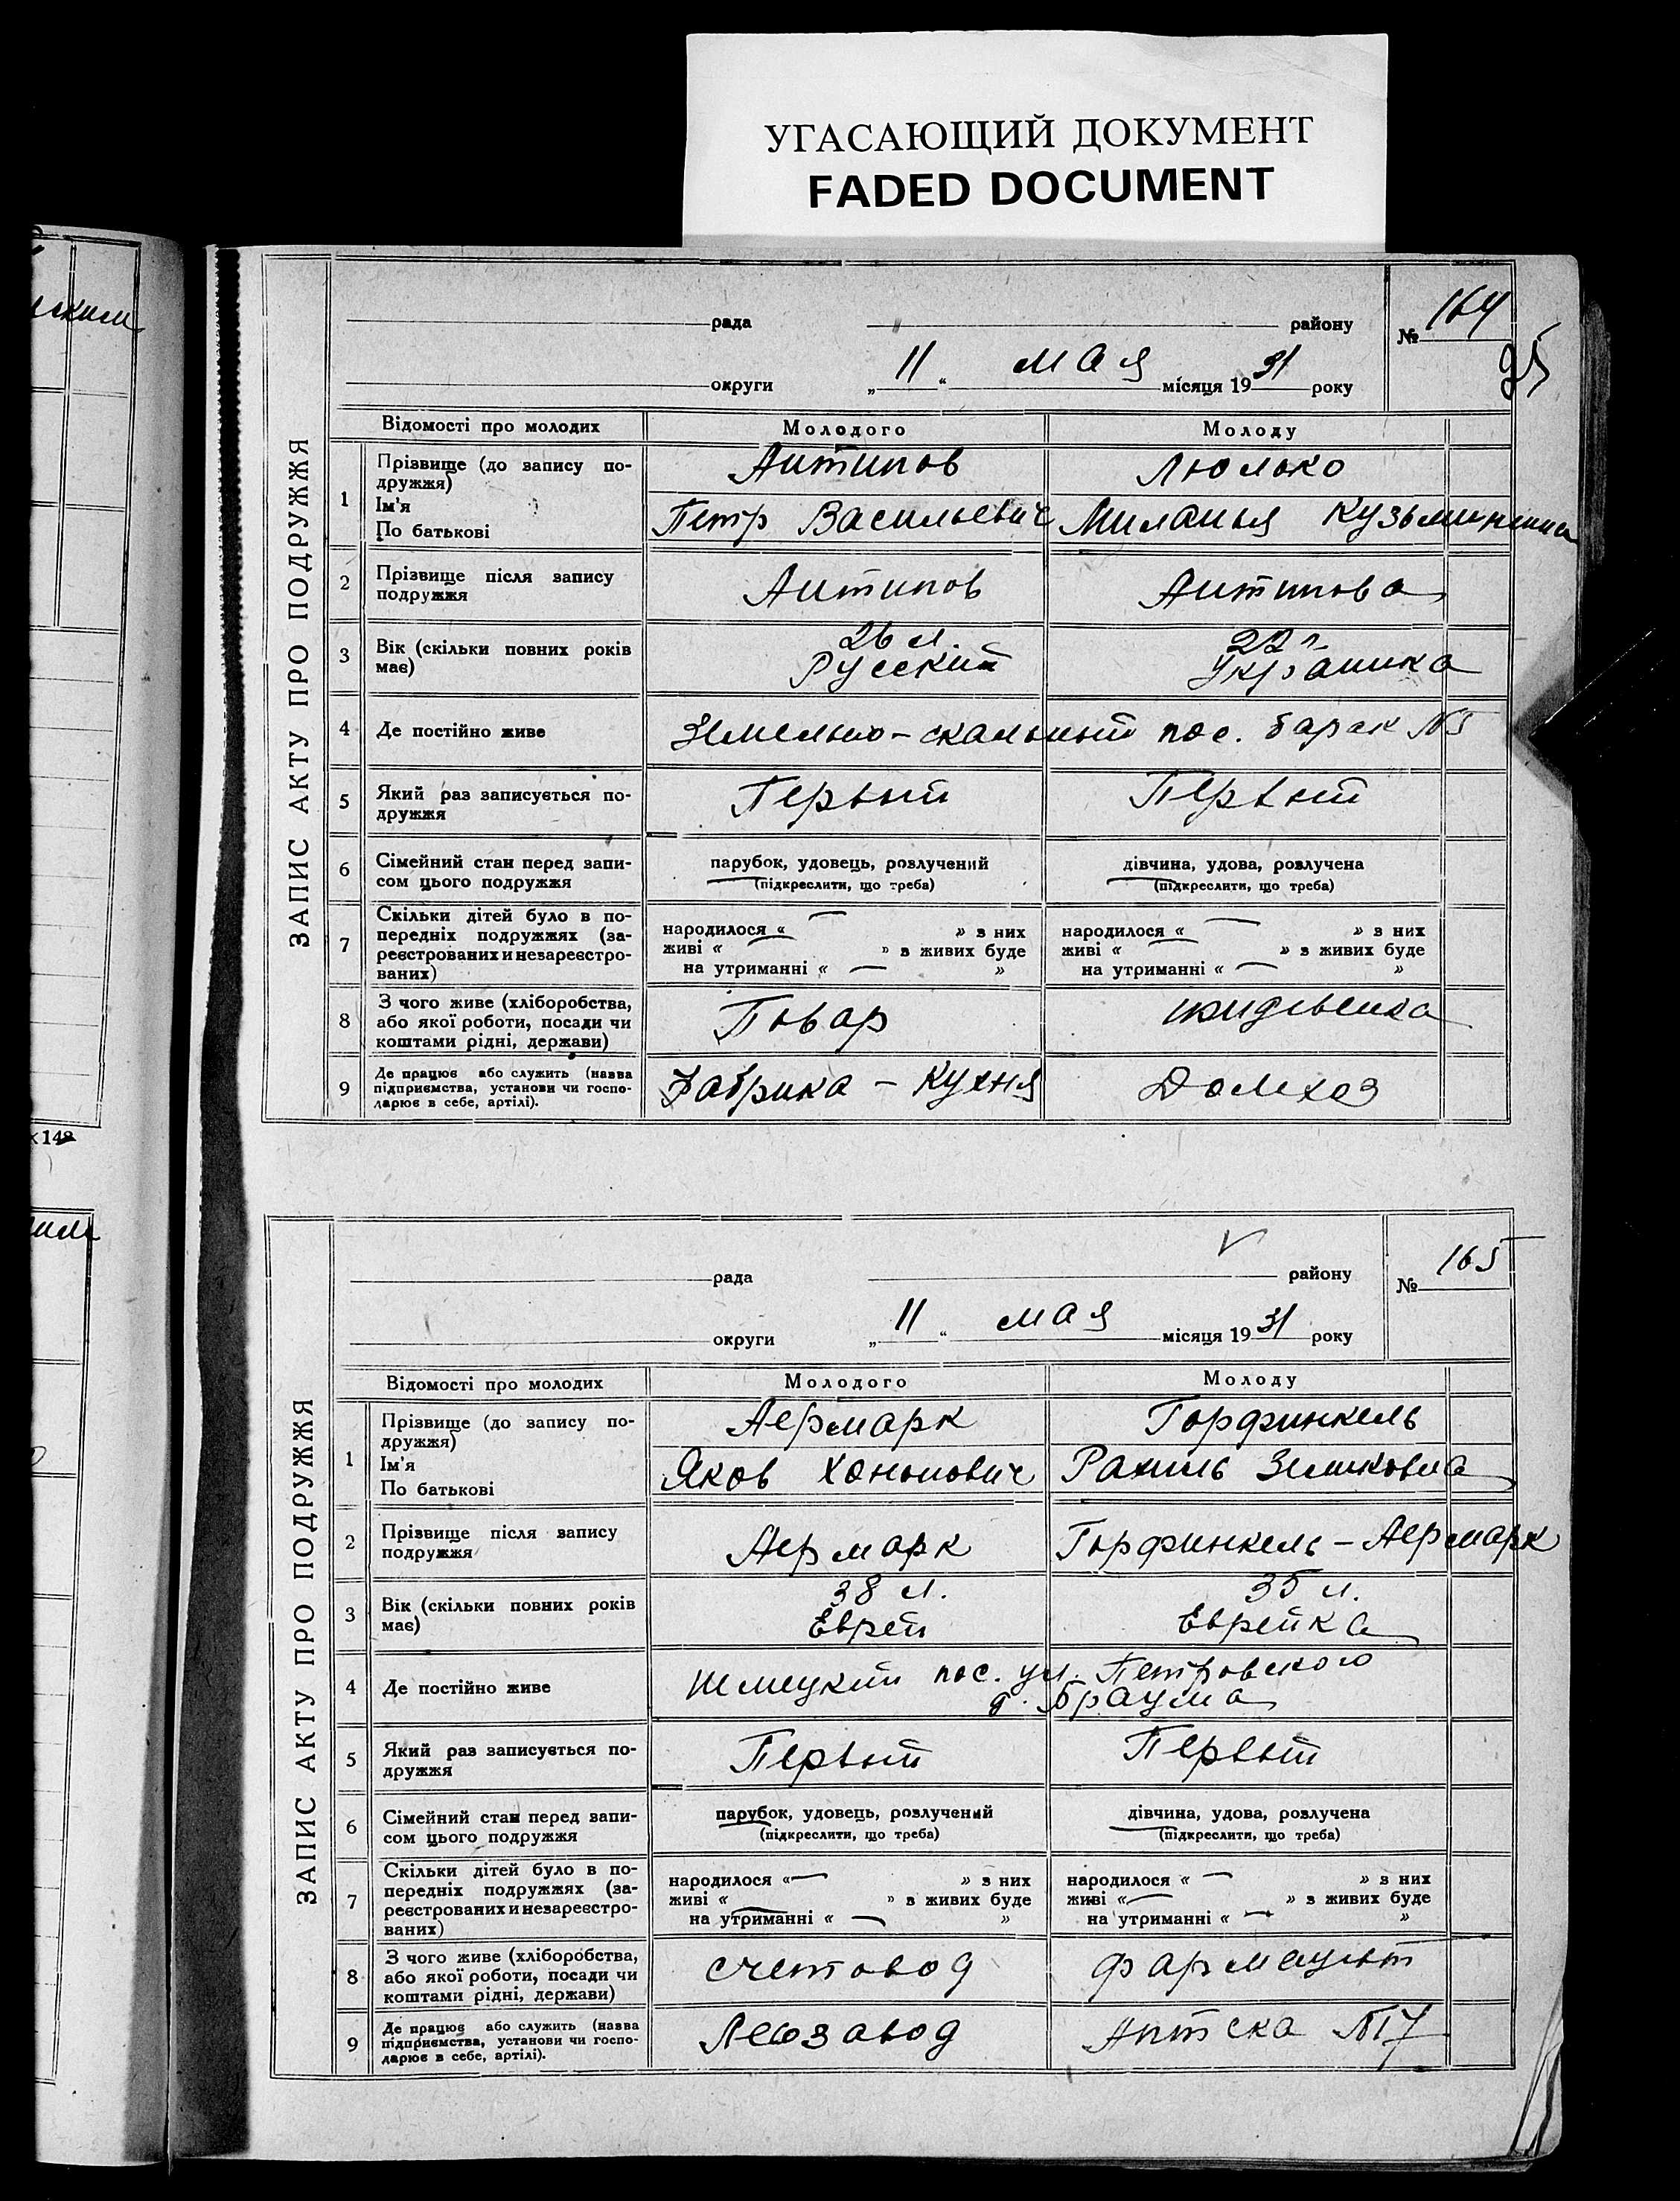 УГАСАЮЩИЙ ДОКУМЕНТ
FADED DOCUMENT
ЗАПИС АКТУ ПРО ПОДРУЖЖЯ
рада району № 164
95
округи „ 11 “ мая місяця 19 31 року
Відомості про молодих Молодого Молоду
1 Прізвище (до запису по-
дружжя)
Ім'я
По батькові
Антипов Люлько
Петр Васильевич Миланья Кузьминична
2 Прізвище після запису
подружжя
Антипов Антипова
3 Вік (скільки повних років
має)
26 л. 22 г.
Русский Украинка
4 Де постійно живе Земельно-скальный пос. барак №5
5 Який раз записується по-
дружжя
Первый Первый
6 Сімейний стан перед запи-
сом цього подружжя
парубок, удовець, розлучений дівчина, удова, розлучена
(підкреслити, що треба) (підкреслити, що треба)
7 Скільки дітей було в по-
передніх подружжях (за-
реєстрованих и незареєстро-
ваних)
народилося « — » з них народилося « — » з них
живі « — » в живих буде живі « — » в живих буде
на утриманні « — » на утриманні « — »
8 З чого живе (хліборобства,
або якої роботи, посади чи
коштами рідні, держави)
Повар иждивенка
9 Де працює або служить (назва
підприємства, установи чи госпо-
дарює в себе, артілі).
Фабрика - Кухня Домхоз
ЗАПИС АКТУ ПРО ПОДРУЖЖЯ
рада району № 165
округи „ 11 “ мая місяця 19 31 року
Відомості про молодих Молодого Молоду
1 Прізвище (до запису по-
дружжя)
Ім'я
По батькові
Аермарк Горфинкель
Яков Хононович Рахиль Зелиховна
2 Прізвище після запису
подружжя
Аермарк Горфинкель - Аермарк
3 Вік (скільки повних років
має)
38 л. 35 л.
Еврей Еврейка
4 Де постійно живе Немецкий пос. ул. Петровского
д. Брауна
5 Який раз записується по-
дружжя
Первый Первый
6 Сімейний стан перед запи-
сом цього подружжя
парубок, удовець, розлучений дівчина, удова, розлучена
(підкреслити, що треба) (підкреслити, що треба)
7 Скільки дітей було в по-
передніх подружжях (за-
реєстрованих и незареєстро-
ваних)
народилося « — » з них народилося « — » з них
живі « — » в живих буде живі « — » в живих буде
на утриманні « — » на утриманні « — »
8 З чого живе (хліборобства,
або якої роботи, посади чи
коштами рідні, держави)
счетовод фармацевт
9 Де працює або служить (назва
підприємства, установи чи госпо-
дарює в себе, артілі).
Лесозавод Аптека №17